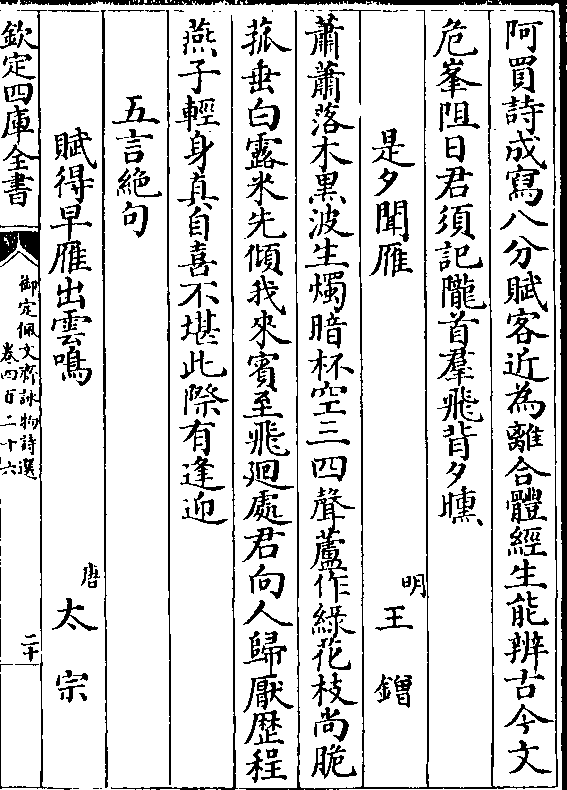 阿買詩成寫八分賦客近為離合體經生能辨古今文
危峯阻日君須記隴首羣飛背夕曛
是夕聞雁
明王鏳
蕭蕭落木黒波生燭暗杯空三四聲蘆作緑花枝尚脆
菰垂白露米先傾我來賓至飛廻處君向人歸厭歴程
燕子輕身真自喜不堪此際有逢迎
五言絶句
賦得早雁出雲鳴
唐太宗
欽定四庫全書
御定佩文齋詠物詩選
卷四百二十六
二十